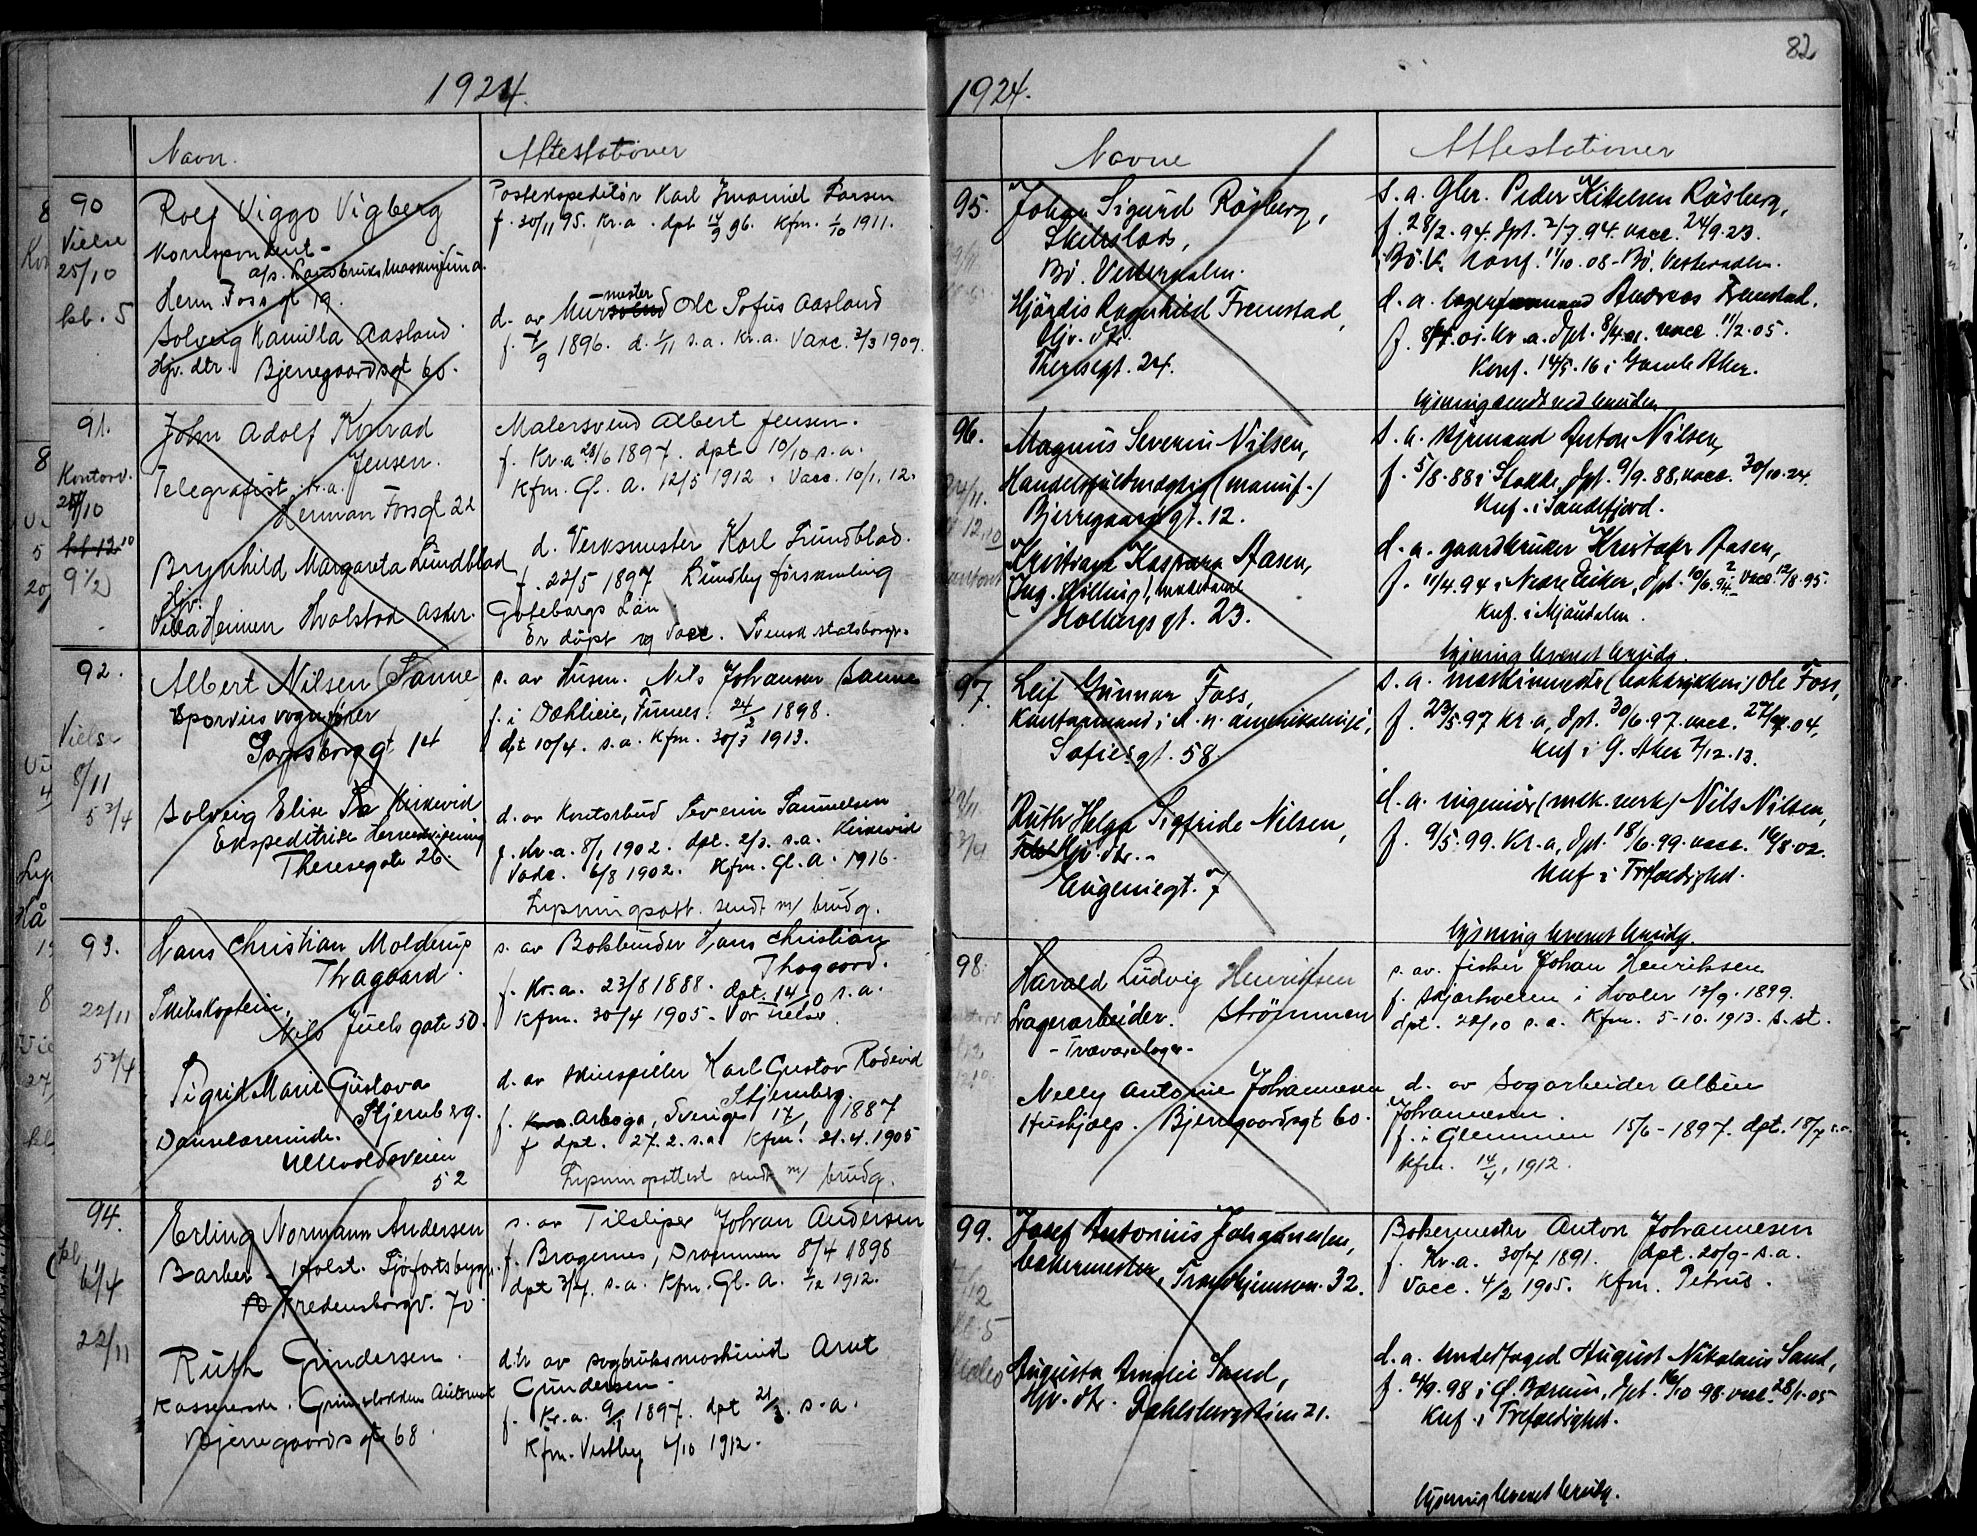 1924.
Navn. Attestationer
90
Vielse
25/10
kb. 5
Rolf Viggo Vigberg
Korrespondent
Herm. Foss gt 19.
Solveig Kamilla Aasland.
Hjv. dtr. Bjerregaardsgt 60.
Postekspeditør Karl Larsen
f. 20/11 95. Kr.a. dpt 14/9 96. Kfm. 1/10 1911.
d. av Murmester Ole Sofus Aasland
f. 7/9 1896. d. 1/11 s.a. Kr.a. Vacc. 3/3 1909.
91.
Kontorv.
9 1/2
John Adolf Konrad
Jensen.
Telegrafist. Kr.a.
Herman Fossgt 22
Brynhild Margareta Lundblad
Hjv.
Villa Heimen Hvalstad Asker.
Malersvend Albert Jensen.
f. Kr.a. 28/6 1897. dpt 10/10 s.a.
Kfm. Gl. A. 12/5 1912. Vacc. 10/1. 12.
d. Verksmester Karl Lundblad.
f. 22/5 1897 Lundby församling
Göteborgs Län
Er døpt og Vacc. Svensk statsborger.
92.
Vielse
8/11
5 3/4
Albert Nilsen Sanne
Sporveisvognfører
Sarpsborggt 14
Solveig Elise Sa Kirkevid
Ekspeditrise
Theresegate 26.
s. av Husm. Nils Johansen Sanne
f. i Dæhlieie, Furnes. 24/2 1898.
dpt 10/4. s.a. Kfm. 30/3 1913.
d. av Kontorbud Severin Samuelsen
Kirkevid
f. Kr.a. 8/1 1902. dpt. 2/3. s.a.
Vacc. 6/8 1902. Kfm. Gl. A. 1916.
Lysningsatt. sendt m/ brudg.
93.
22/11
5 3/4
Hans Christian Molderup
Thagaard.
Skibskaptein,
Nils Juels gate 50.
Sigrid Marie Gustava
Stjernberg.
Danselærerinde.
Ullevoldsveien
52
s. av Bokbinder Hans Christian
Thagaard.
f. Kr.a. 23/8 1888. dpt. 14/10 s.a.
Kfm. 30/4 1905. Vor Frelser.
d. av Skuespiller Karl Gustav Rodevid
Stjernberg.
f. Arboga, Sverige 17/1 1887
f dpt. 27. 2. s.a. Kfm. 21.4. 1905
Lysningsattest sendt m/ brudg.
94.
kl.
6 1/4
22/11
Erling Normann Andersen
Barber - Holst. Sjøfartsbygn.
Fredensborgv. 70.
Ruth Gundersen.
Kassererske.
Bjerregaardsgt 68.
s. av Filsliper Johan Andersen
f. Bragernes, Drammen 8/4 1898
dpt 3/7. s.a. Kfm. Gl. A. 1/12 1912.
dtr av sagbruksmaskinist Arnt
Gundersen.
f. Kr.a. 9/1 1897. dpt 21/3. s.a.
Kfm. Vestby 6/10 1912.
82
1924.
Navne Attestationer
95.
Johan Sigurd Røsberg,
Bø. Vesteraalen.
Hjørdis Ragnhild Fremstad,
Hjv. dtr.
Theresegt. 24.
s. a. Gbr. Peder Kittelsen Røsberg,
f. 28/2. 94. dpt. 2/7. 94. vacc. 24/9. 23.
Bø. V. Konf. 1/10. 08 - Bø. Vesteraalen.
d. a. lagerformand Andreas Fremstad.
Konf. 14/5. 16 i Gamle Aker.
lysning sendt ved bruden
96.
24/11.
Magnus Severin Nilsen,
Handelsfuldmægtig (manuf.)
Bjerregaardsgt. 12.
Kristiane Kaspara Aasen,
Holbergsgt. 23.
s. a. Styrmand Anton Nilsen,
f. 5/8. 88 i Stokke, dpt. 9/9. 88, vacc. 30/10. 24
Knf. i Sandefjord.
d. a. gaardbruker Kristofer Aasen,
f. 11/4. 94 i Nedre Eiker, dpt. 10/6. 94. vacc. 12/8. 95.
Knf. i Mjøndalen.
lysning leveret brudg.
97.
Leif Gunnar Foss,
Kontormand i d. n. amerikalinje,
Sofiesgt. 58.
Ruth Helga Sigfride Nilsen,
Hjv. dtr.
Eugeniegt. 7
s. a. maskinmester (boktrykkeri) Ole Foss,
f. 23/5. 97 Kr.a, dpt. 30/6. 97. vacc. 27/4. 04,
Knf i G. Aker 7/12. 13.
d. a. ingeniør (mek. verk) Nils Nilsen,
f. 9/5. 99. Kr.a, dpt. 18/6. 99. vacc. 16/8. 02.
Knf i Trefoldighed.
lysning leveret brudg.
98.
Harald Ludvig Henriksen
Lagerarbeider. Strømmen
- Trævarelager -
Nelly Antonie Johannesen
Hushjælp. Bjerregaardsgt 60.
s. av. fisker Johan Henriksen
f. Skjærhveien i Hvaler 13/9. 1899.
dpt. 22/10 s.a. Kfm. 5-10. 1913. s. st.
d. av Sagarbeider Albin
Johannesen.
f. i Glemmen 15/6 - 1897. dpt. 18/7 s.a.
Kfm. 14/4, 1912.
99.
Josef Antonius Johannesen,
bakermester, Trondhjemsvn. 32.
Augusta Amalie Sand,
Hjv. dtr. Dahlsbergstien 21.
Bakermester Anton Johannesen
f. Kr.a. 30/7 1891. dpt. 20/9 - s.a.
Vacc. 4/2 1905. Kfm. Petrus.
d. a. Underfoged August Nikolaus Sand,
f. 4/9. 98 i Ø. Bærum, dpt. 16/10 98 vacc. 28/1. 05
Knf. i Trefoldighed.
lysning leveret brudg.